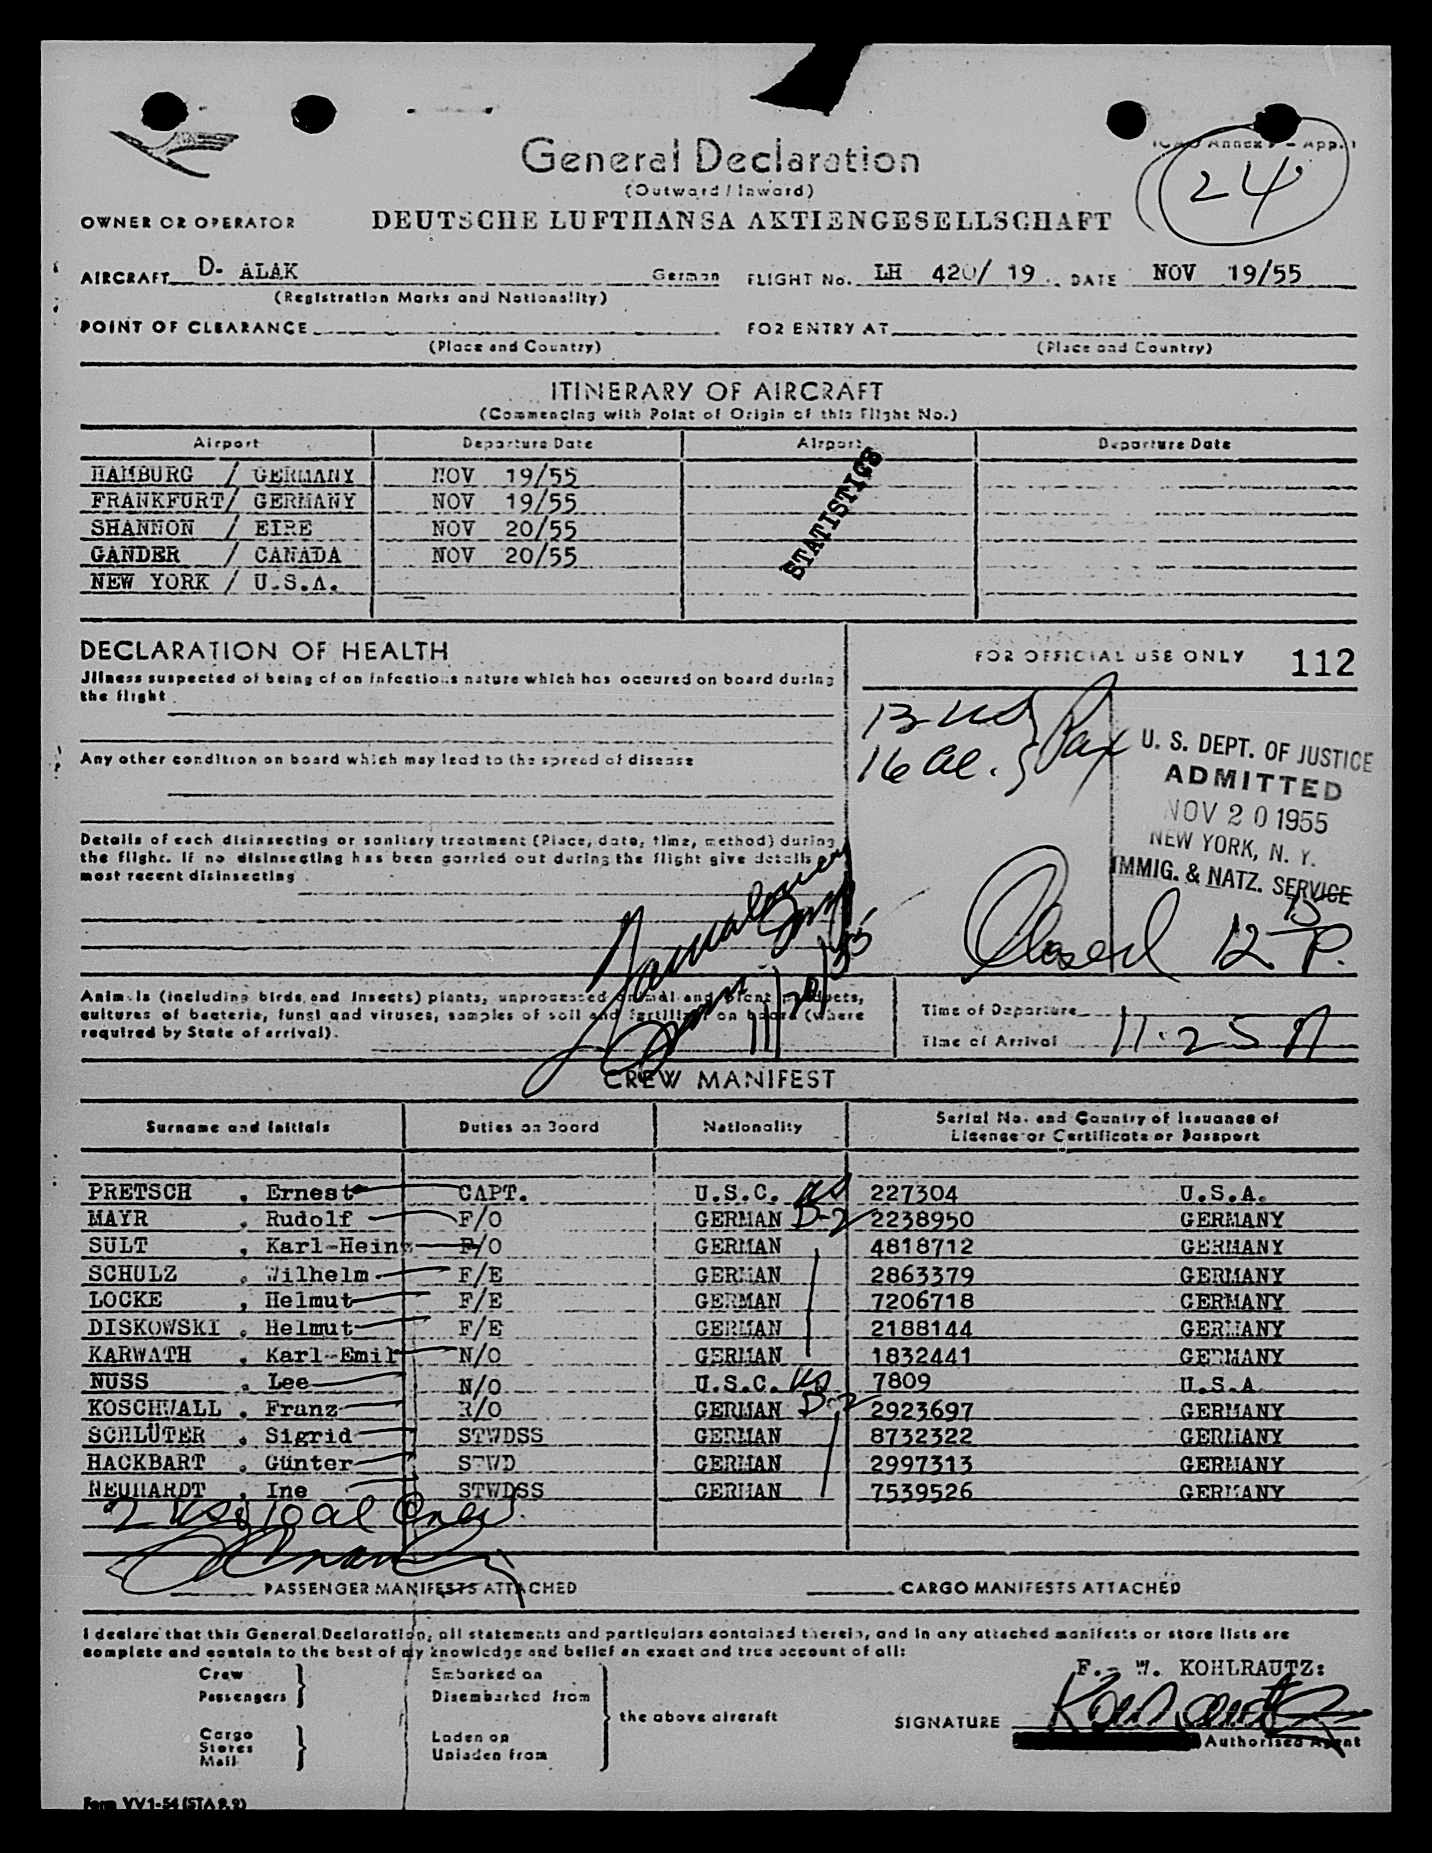 ICAO Annex 9 - App. 1
24
General Declaration
(Outward / Inward)
OWNER OR OPERATOR DEUTSCHE LUFTHANSA AKTIENGESELLSCHAFT
AIRCRAFT D- ALAK German FLIGHT No. LH 420/ 19 DATE NOV 19/55
(Registration Marks and Nationality)
POINT OF CLEARANCE FOR ENTRY AT
(Place and Country) (Place and Country)
ITINERARY OF AIRCRAFT
(Commencing with Point of Origin of this Flight No.)
Airport Departure Date Airport Departure Date
HAMBURG / GERMANY NOV 19/55
FRANKFURT/ GERMANY NOV 19/55
SHANNON / EIRE NOV 20/55
GANDER / CANADA NOV 20/55
NEW YORK / U.S.A.
STATISTICS
DECLARATION OF HEALTH FOR OFFICIAL USE ONLY 112
Illness suspected of being of an infectious nature which has occured on board during
the flight
13 US } Pax
16 al. }
U. S. DEPT. OF JUSTICE
ADMITTED
NOV 20 1955
NEW YORK, N. Y.
IMMIG. & NATZ. SERVICE
Any other condition on board which may lead to the spread of disease
Details of each disinsecting or sanitary treatment (Place, date, time, method) during
the flight. If no disinsecting has been carried out during the flight give details of
most recent disinsecting
Closed 12 15 P.
11/20/55
Animals (including birds and insects) plants, unprocessed animal and plant products,
cultures of bacteria, fungi and viruses, samples of soil and fertilizer on board (where
required by State of arrival).
Time of Departure
Time of Arrival 11.25 A
CREW MANIFEST
Surname and Initials Duties on Board Nationality Serial No. and Country of Issuance of
License or Certificate or Passport
PRETSCH , Ernest CAPT. U.S.C. US 227304 U.S.A.
MAYR , Rudolf F/O GERMAN D-2 2238950 GERMANY
SULT , Karl-Heinz F/O GERMAN 4818712 GERMANY
SCHULZ , Wilhelm F/E GERMAN 2863379 GERMANY
LOCKE , Helmut F/E GERMAN 7206718 GERMANY
DISKOWSKI , Helmut F/E GERMAN 2188144 GERMANY
KARWATH , Karl-Emil N/O GERMAN 1832441 GERMANY
NUSS , Lee N/O U.S.C. US 7809 U.S.A.
KOSCHWALL , Franz R/O GERMAN D-2 2923697 GERMANY
SCHLÜTER , Sigrid STWDSS GERMAN 8732322 GERMANY
HACKBART , Günter STWD GERMAN 2997313 GERMANY
NEUHARDT , Ine STWDSS GERMAN 7539526 GERMANY
2 USC 10 al Crew
PASSENGER MANIFESTS ATTACHED CARGO MANIFESTS ATTACHED
I declare that this General Declaration, all statements and particulars contained therein, and in any attached manifests or store lists are
complete and contain to the best of my knowledge and belief an exact and true account of all:
F.- W. KOHLRAUTZ:
Crew Embarked on
Passengers Disembarked from
the above aircraft
SIGNATURE
Cargo Laden on
Stores
Mail Unladen from
Authorised Agent
Form VV1-54 (STA 9.9)